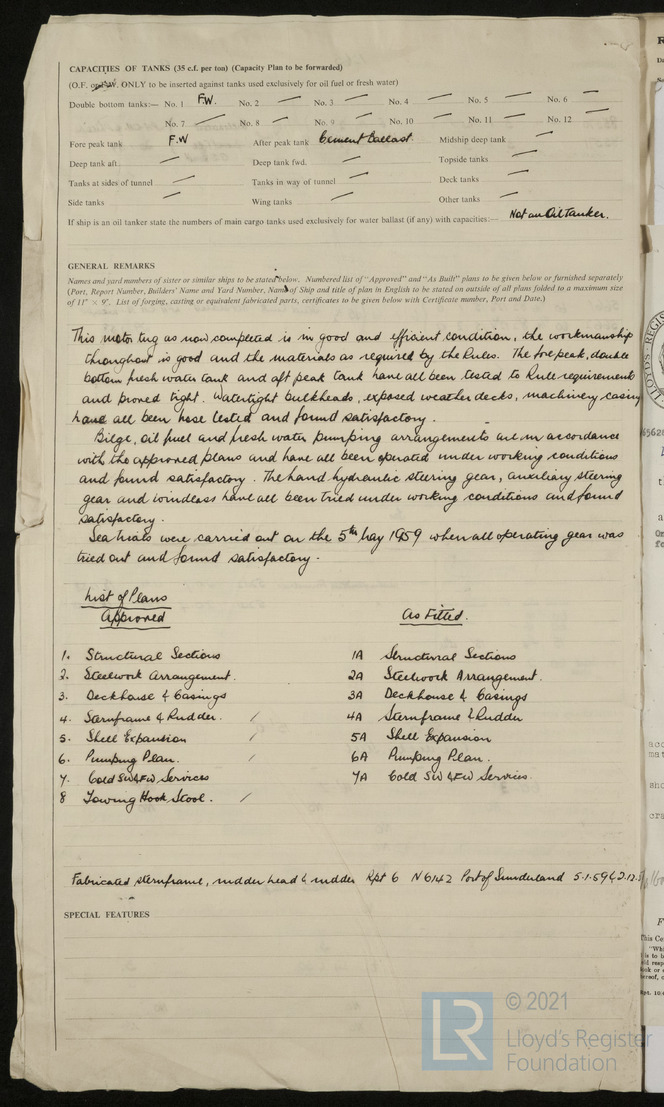 CAPACITIES OF TANKS (35 c.f. per ton) (Capacity Plan to be forwarded)
(O.F. or F.W. ONLY to be inserted against tanks used exclusively for oil fuel or fresh water)
Double bottom tanks:— No. 1 F.W. No. 2 — No. 3 — No. 4 — No. 5 — No. 6 —
No. 7 — No. 8 — No. 9 — No. 10 — No. 11 — No. 12 —
Fore peak tank F.W After peak tank Cement Ballast. Midship deep tank —
Deep tank aft. — Deep tank fwd. — Topside tanks —
Tanks at sides of tunnel — Tanks in way of tunnel — Deck tanks —
Side tanks — Wing tanks — Other tanks —
If ship is an oil tanker state the numbers of main cargo tanks used exclusively for water ballast (if any) with capacities:— Not an Oil Tanker.
GENERAL REMARKS
Names and yard numbers of sister or similar ships to be stated below. Numbered list of "Approved" and "As Built" plans to be given below or furnished separately
(Port, Report Number, Builders' Name and Yard Number, Name of Ship and title of plan in English to be stated on outside of all plans folded to a maximum size
of 11" × 9". List of forging, casting or equivalent fabricated parts, certificates to be given below with Certificate number, Port and Date.)
This motor tug as now completed is in good and efficient condition, the workmanship
throughout is good and the materials as required by the Rules. The fore peak, double
bottom fresh water tank and aft peak tank have all been tested to Rule requirements
and proved tight. Watertight bulkheads, exposed weather decks, machinery casing
have all been hose tested and found satisfactory.
Bilge, oil fuel and fresh water pumping arrangements are in accordance
with the approved plans and have all been operated under working conditions
and found satisfactory. The hand hydraulic steering gear, auxiliary steering
gear and windlass have all been tried under working conditions and found
satisfactory.
Sea trials were carried out on the 5th May 1959 when all operating gear was
tried out and found satisfactory.
List of Plans
Approved As Fitted.
1. Structural Sections 1A Structural Sections
2. Steelwork Arrangement. 2A Steelwork Arrangement.
3. Deckhouse & Casings 3A Deckhouse & Casings
4. Sternframe & Rudder. / 4A Sternframe & Rudder
5. Shell Expansion / 5A Shell Expansion
6. Pumping Plan. / 6A Pumping Plan.
7. Cold SW & FW Services 7A Cold SW & FW Services.
8 Towing Hook Stool. /
Fabricated sternframe, rudder head & rudder Rpt 6 N 6142 Port of Sunderland 5.1.59 &
SPECIAL FEATURES
LR
© 2021
Lloyd's Register
Foundation